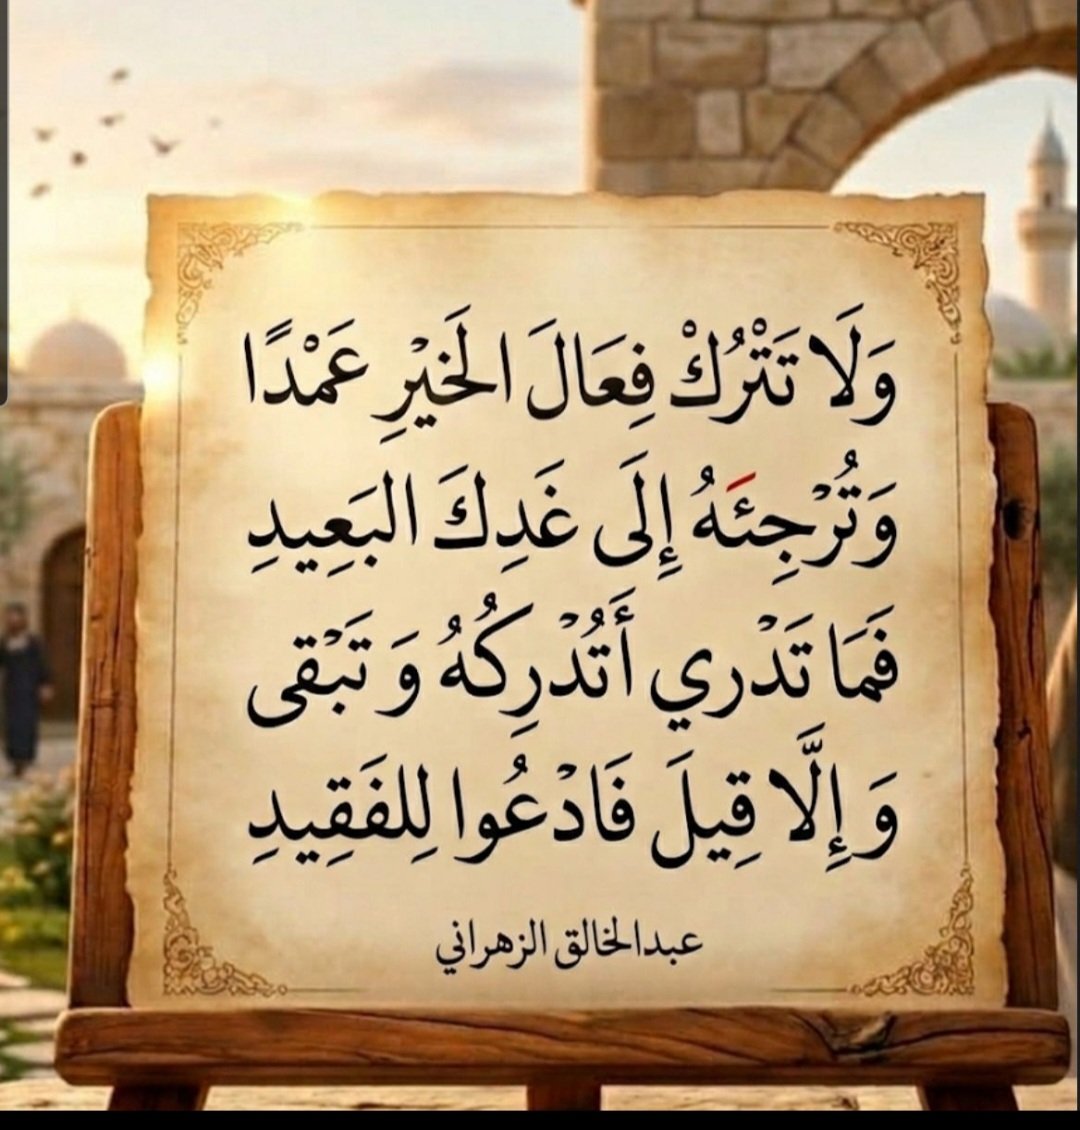 وَلَا تَتْرُكْ فِعَالَ الخَيْرِ عَمْدًا
وَتُرْجِئَهُ إِلَى غَدِكَ البَعِيدِ
فَمَا تَدْرِي أَتُدْرِكُهُ وَ تَبْقَى
وَ إِلَّا قِيلَ فَادْعُوا لِلفَقِيدِ
عبدالخالق الزهراني